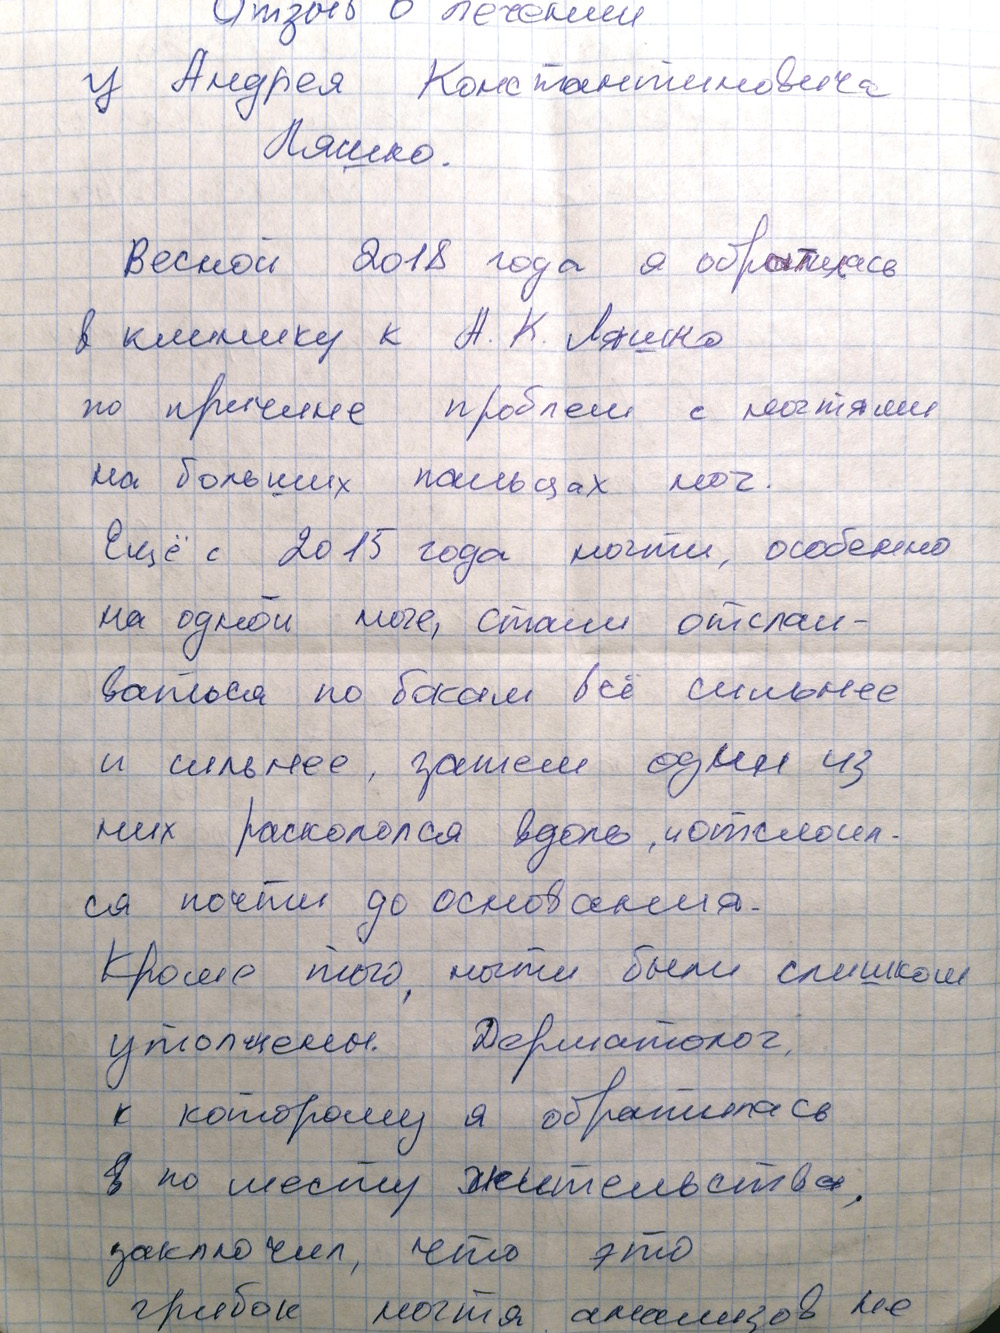 Отзыв о лечении
у Андрея Константиновича
Ляшко.
Весной 2018 года я обратилась
в клинику к А. К. Ляшко
по причине проблем с ногтями
на больших пальцах ног.
Ещё с 2015 года ногти, особенно
на одной ноге, стали отслаи-
ваться по бокам всё сильнее
и сильнее, затем один из
них раскололся вдоль, и отслоил-
ся почти до основания.
Кроме того, ногти были слишком
утолщены. Дерматолог,
к которому я обратилась
в по месту жительства,
заключил, что это
грибок ногтя, анализов не